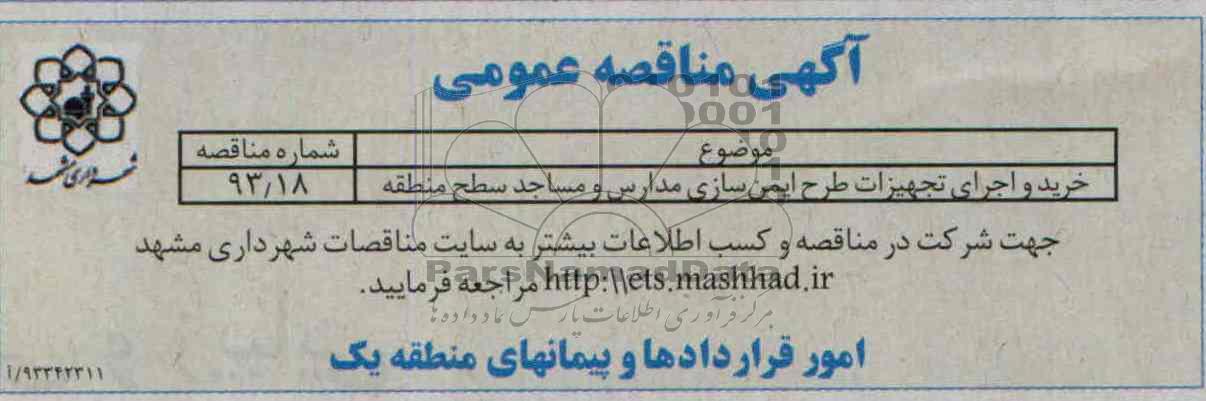 آگهی مناقصه عمومی
شهرداری مشهد
موضوع شماره مناقصه
خرید و اجرای تجهیزات طرح ایمن‌سازی مدارس و مساجد سطح منطقه ۹۳/۱۸
جهت شرکت در مناقصه و کسب اطلاعات بیشتر به سایت مناقصات شهرداری مشهد
http:\\ets.mashhad.ir مراجعه فرمایید.
ParsNamadData
مرکز فرآوری اطلاعات پارس نماد داده ها
امور قراردادها و پیمانهای منطقه یک
۹۳۳۴۲۳۱۱/آ